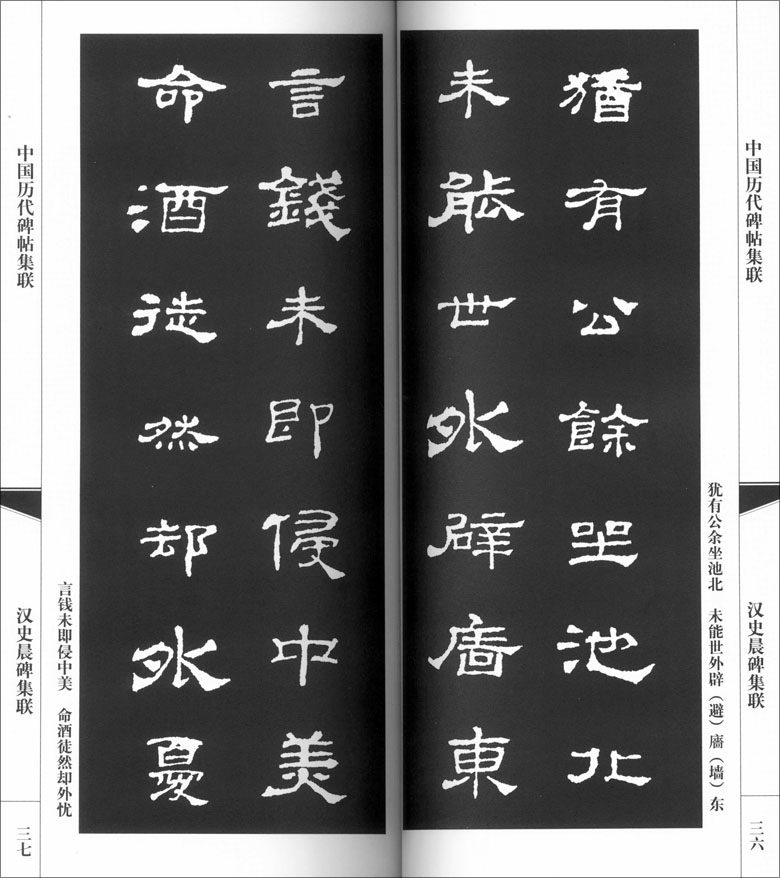 中国历代碑帖集联
汉史晨碑集联
三六
犹有公余坐池北　未能世外辟（避）廧（墙）东
猶有公餘坐池北
未能世外辟廧東
言錢未即侵中美
命酒徒然却外憂
言钱未即侵中美　命酒徒然却外忧
中国历代碑帖集联
汉史晨碑集联
三七